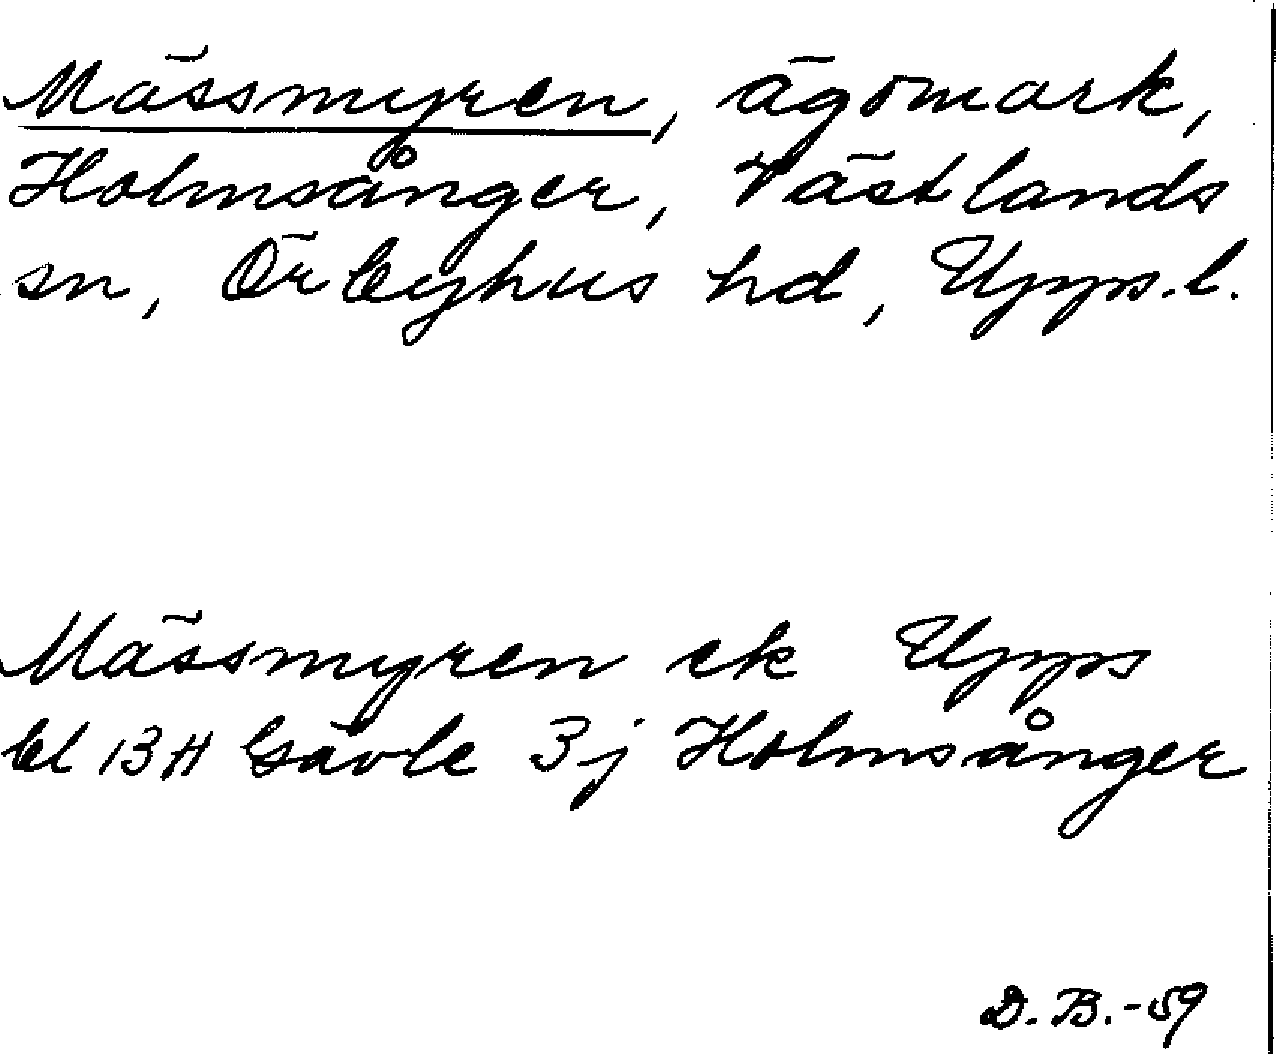 Mässmyren, ägomark,
Holmsånger, Västlands
sn, Örbyhus hd, Upps. l.
Mässmyren ek Upps
bl 13 H Gävle 3j Holmsånger
D. B. -59